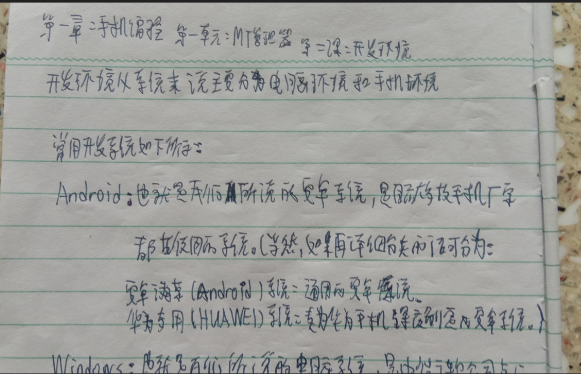 第一章：手机编程 第一单元：MT管理器 第二课：开发环境
开发环境从系统来说主要分为电脑环境和手机环境
常用开发系统如下所示：
Android：也就是我们所说的安卓系统，是目前大多数手机厂家
都在使用的系统。(当然，如果再详细分类的话可分为：
安卓清装(Android)系统：通用的安卓系统。
华为专用(HUAWEI)系统：专为华为手机深度制定的安卓系统。)
Windows：也就是我们所说的电脑系统，是由微软公司